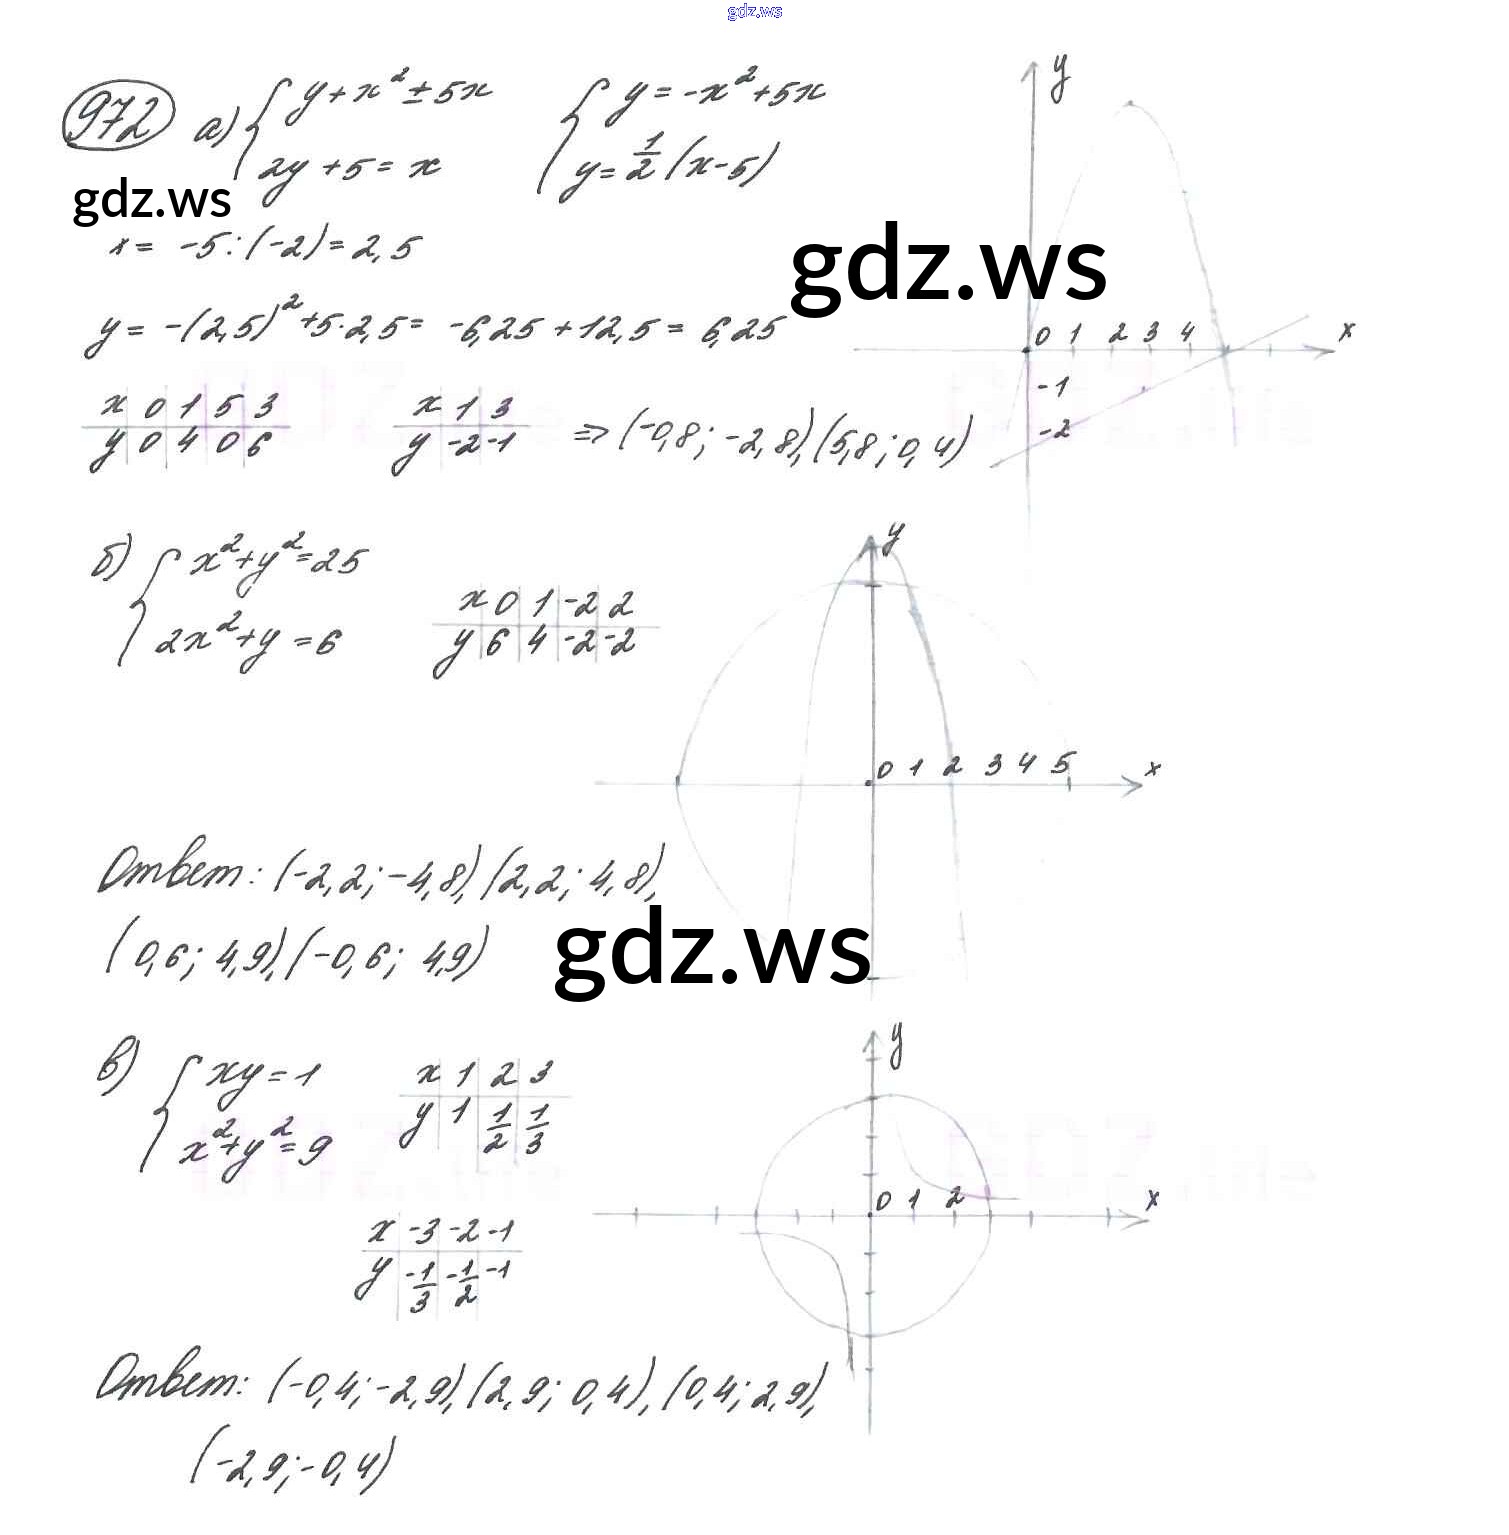 gdz.ws
972 а) { y + x² ± 5x { y = -x² + 5x
2y + 5 = x y = 1/2 (x - 5)
gdz.ws
x = -5 : (-2) = 2,5
gdz.ws
y = -(2,5)² + 5 · 2,5 = -6,25 + 12,5 = 6,25
x 0 1 5 3 x 1 3
y 0 4 0 6 y -2 -1 => (-0,8; -2,8), (5,8; 0,4)
y
0 1 2 3 4 x
-1
-2
б) { x² + y² = 25
2x² + y = 6
x 0 1 -2 2
y 6 4 -2 -2
y
0 1 2 3 4 5 x
Ответ: (-2,2; -4,8), (2,2; 4,8),
(0,6; 4,9), (-0,6; 4,9)
gdz.ws
в) { xy = 1
x² + y² = 9
x 1 2 3
y 1 1/2 1/3
x -3 -2 -1
y -1/3 -1/2 -1
y
0 1 2 x
Ответ: (-0,4; -2,9), (2,9; 0,4), (0,4; 2,9),
(-2,9; -0,4)